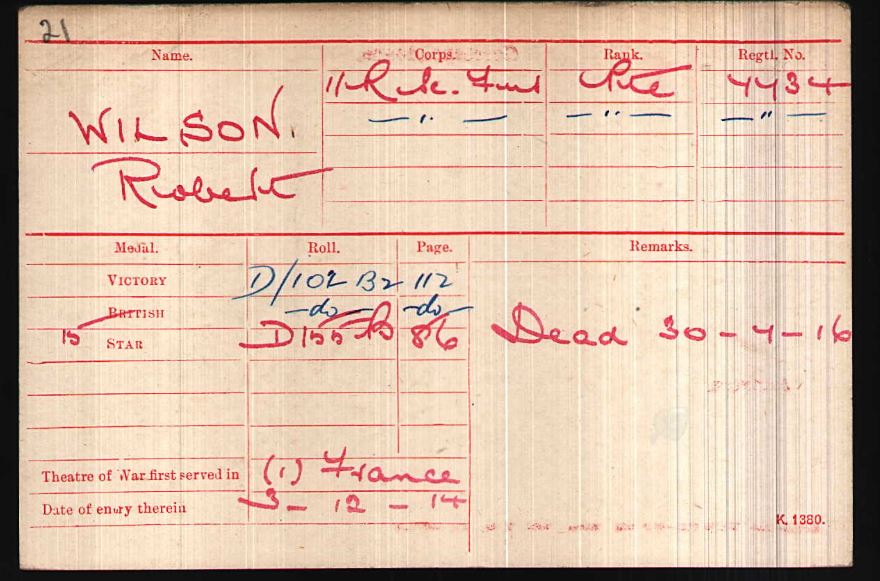 21
Name. Corps. Rank. Regtl. No.
WILSON. 11/R. Sc. Fus Pte 4434
— " — — " — — " —
Robert
Medal. Roll. Page. Remarks.
VICTORY D/102 B2 112
BRITISH -do- -do-
15 STAR D/155 B 86 Dead 30-4-16
Theatre of War first served in (1) France
Date of entry therein 3 - 12 - 14
K. 1380.